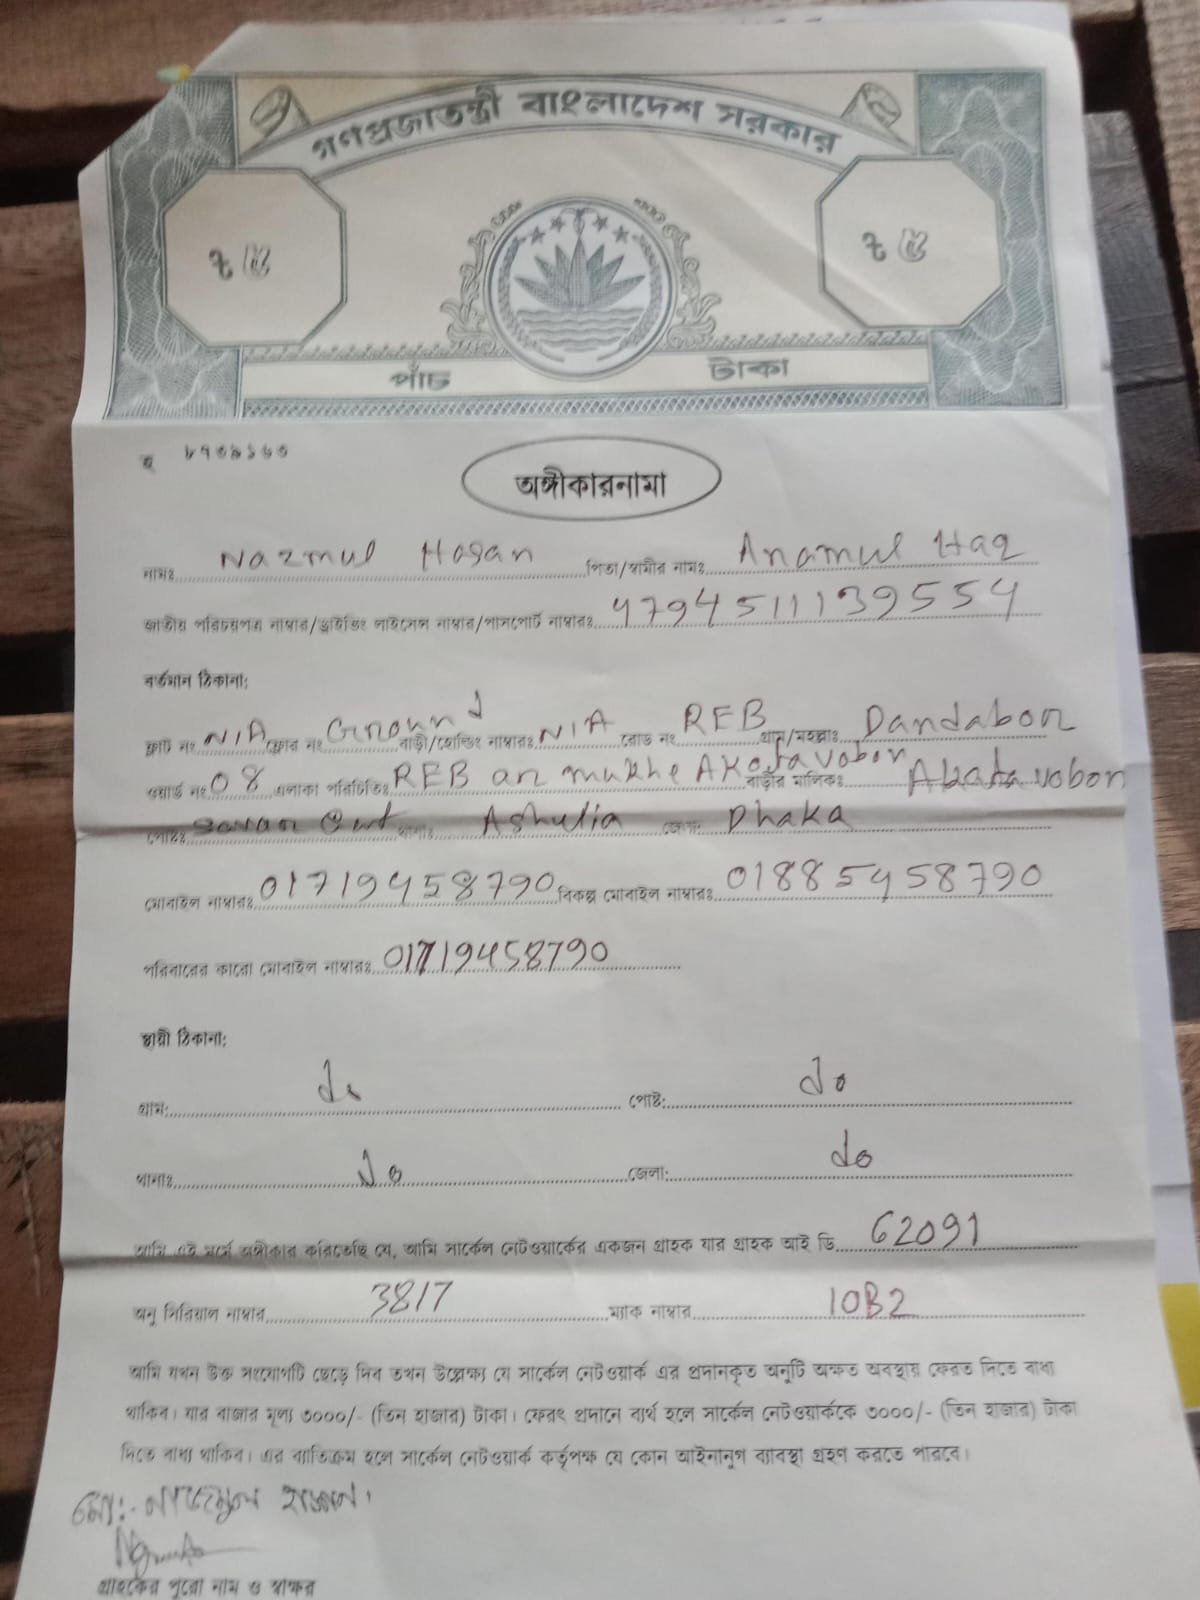 গণপ্রজাতন্ত্রী বাংলাদেশ সরকার
৳ ৫ ৳ ৫
পাঁচ টাকা
অঙ্গীকারনামা
নামঃ Nazmul Hasan পিতা/স্বামীর নামঃ Anamul Haq
জাতীয় পরিচয়পত্র নাম্বার/ড্রাইভিং লাইসেন্স নাম্বার/পাসপোর্ট নাম্বারঃ 4794511139554
বর্তমান ঠিকানা:
ফ্লাট নং N/A ফ্লোর নং Ground বাড়ী/হোল্ডিং নাম্বারঃ N/A রোড নং REB গ্রাম/মহল্লাঃ Dandabor
ওয়ার্ড নং 08 এলাকা পরিচিতিঃ REB ar mukhe Akota vobon বাড়ীর মালিকঃ Akata vobon
পোষ্টঃ Savar Cant থানাঃ Ashulia জেলা: Dhaka
মোবাইল নাম্বারঃ 01719458790 বিকল্প মোবাইল নাম্বারঃ 01885458790
পরিবারের কারো মোবাইল নাম্বারঃ 01719458790
স্থায়ী ঠিকানা:
গ্রাম: do পোষ্ট: do
থানাঃ do জেলা: do
আমি এই মর্মে অঙ্গীকার করিতেছি যে, আমি সার্কেল নেটওয়ার্কের একজন গ্রাহক যার গ্রাহক আই ডি 62091
অনু সিরিয়াল নাম্বার 3817 ম্যাক নাম্বার 10B2
আমি যখন উক্ত সংযোগটি ছেড়ে দিব তখন উল্লেক্ষ্য যে সার্কেল নেটওয়ার্ক এর প্রদানকৃত অনুটি অক্ষত অবস্থায় ফেরত দিতে বাধ্য
থাকিব। যার বাজার মূল্য ৩০০০/- (তিন হাজার) টাকা। ফেরৎ প্রদানে ব্যর্থ হলে সার্কেল নেটওয়ার্ককে ৩০০০/- (তিন হাজার) টাকা
দিতে বাধ্য থাকিব। এর ব্যাতিক্রম হলে সার্কেল নেটওয়ার্ক কর্তৃপক্ষ যে কোন আইনানুগ ব্যাবস্থা গ্রহণ করতে পারবে।
মো:- নাজমুল হাসান।
গ্রাহকের পুরো নাম ও স্বাক্ষর